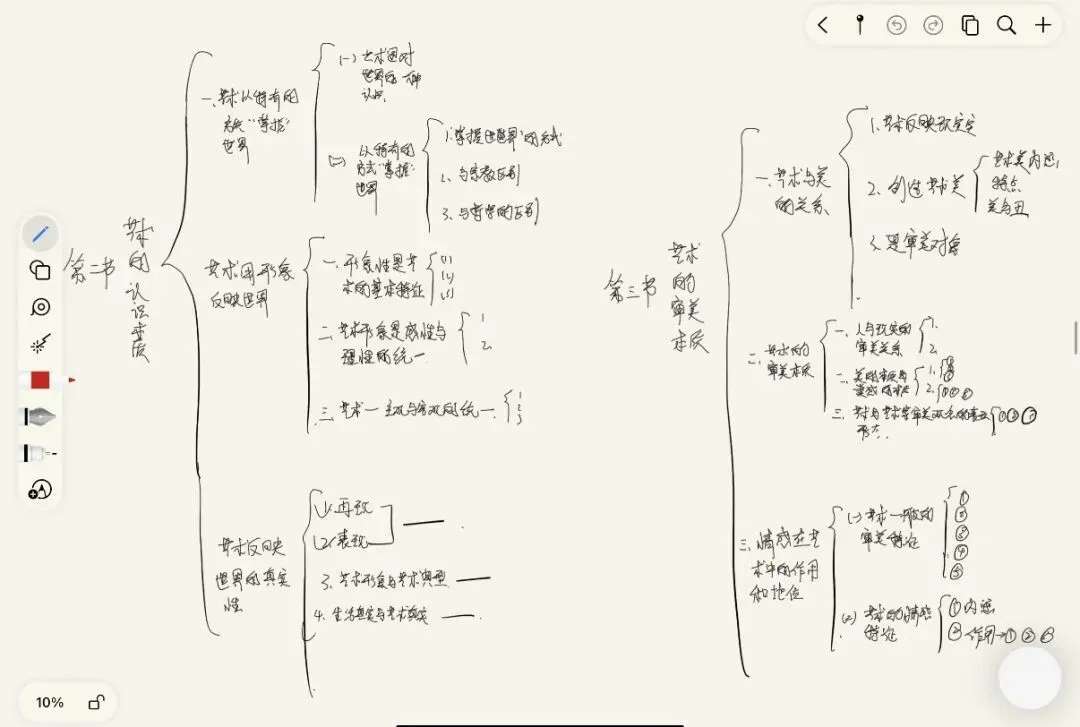 第二节
艺术
的
认
识
本
质
一、艺术以特有的
方式"掌握"
世界
(一) 艺术因对
世界的一种
认识
(二) 以特有的
方式"掌握"
世界
1.掌握世界的方式
2、与宗教区别
3、与哲学的区别
艺术用形象
反映世界
一、形象性是艺
术的基本特征
(1)
(2)
(3)
二、艺术形象是感性与
理性的统一
1
2.
三、艺术一主观与客观的统一.
1
2
3
艺术反映
世界的真实
性
(1)、再现
(2)、表现
3、艺术形象与艺术典型
4. 生活真实与艺术真实
第三节
艺术
的
审美
本质
一、艺术与美
的关系
1.艺术反映现实
2. 创造艺术美
艺术美内容,
特点
美与丑
3、是审美对象
二、艺术的
审美本质
一、人与现实的
审美关系
1.
2.
二、美的本质与
美感的本质
1.①②
2.①②③
三、艺术与艺术学审美
形态.
①②③
三、情感在艺
术中的作用
和地位
(一)艺术一般的
审美特征
①
②
③
④
⑤
(2) 艺术的情感
特征
①内容
②作用→①②③
10%